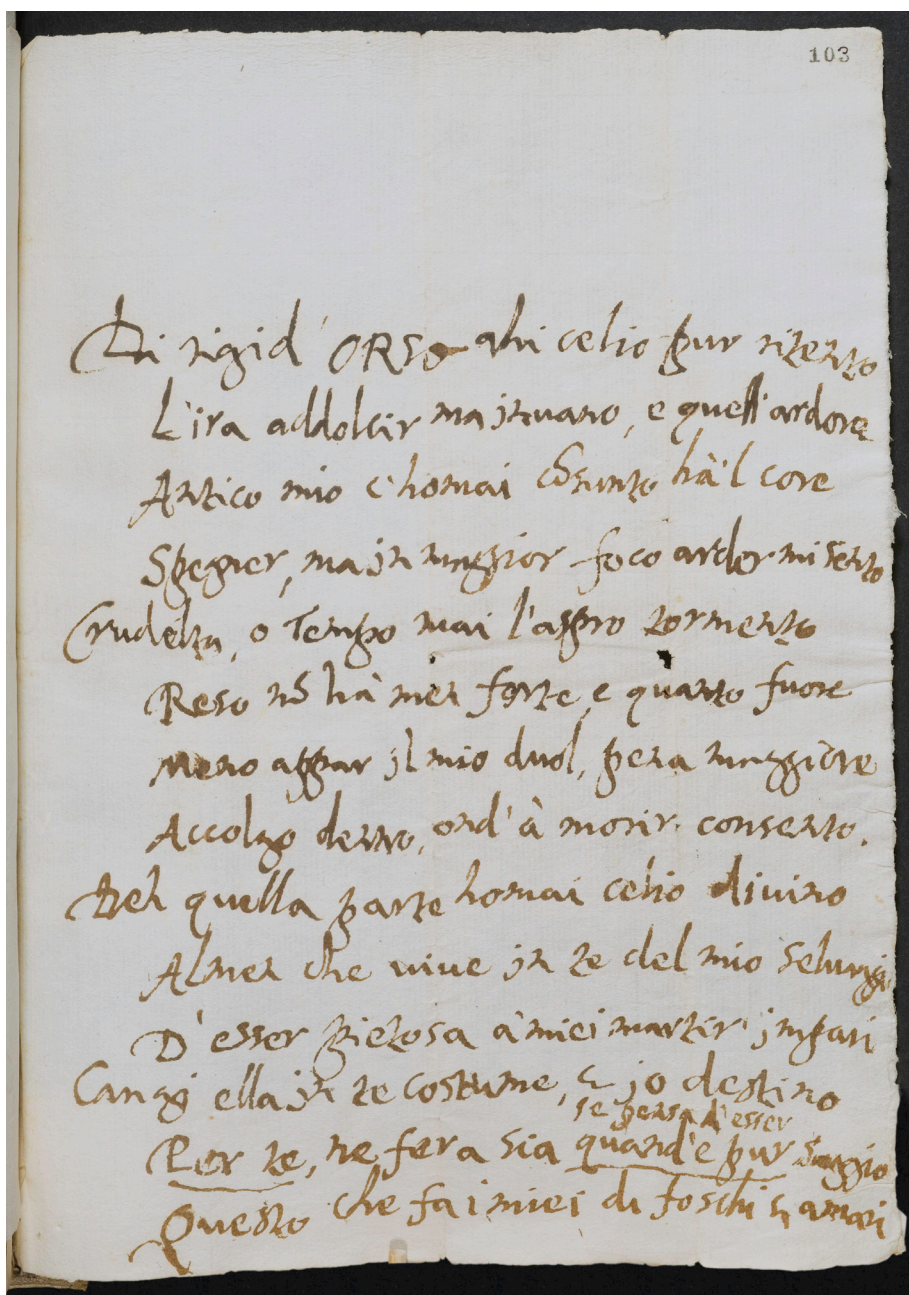 103
Di rigid' ORSO ahi celio pur ritento
L'ira addolcir ma jnuano, e quell'ardore
Antico mio c'homai cõsunto hà 'l core
Spegner, ma jn maggior foco arder mi sento
Crudeltà, o Tempo mai l'aspro tormento
Reso nõ hà men forte, e quanto fuore
Meno appar jl mio duol, pena maggiore
Accolgo dentro, ond' à morir consento.
Deh quella parte homai celio divino
Almen che viue jn te del mio seluaggio
D'esser pietosa à miei martir' jmpari
Cangi ella jn te costume, e jo destino
se pensa d'esser
Per te, ne fera sia quand'è pur saggio
Questo che fa i miei dì foschi e amari